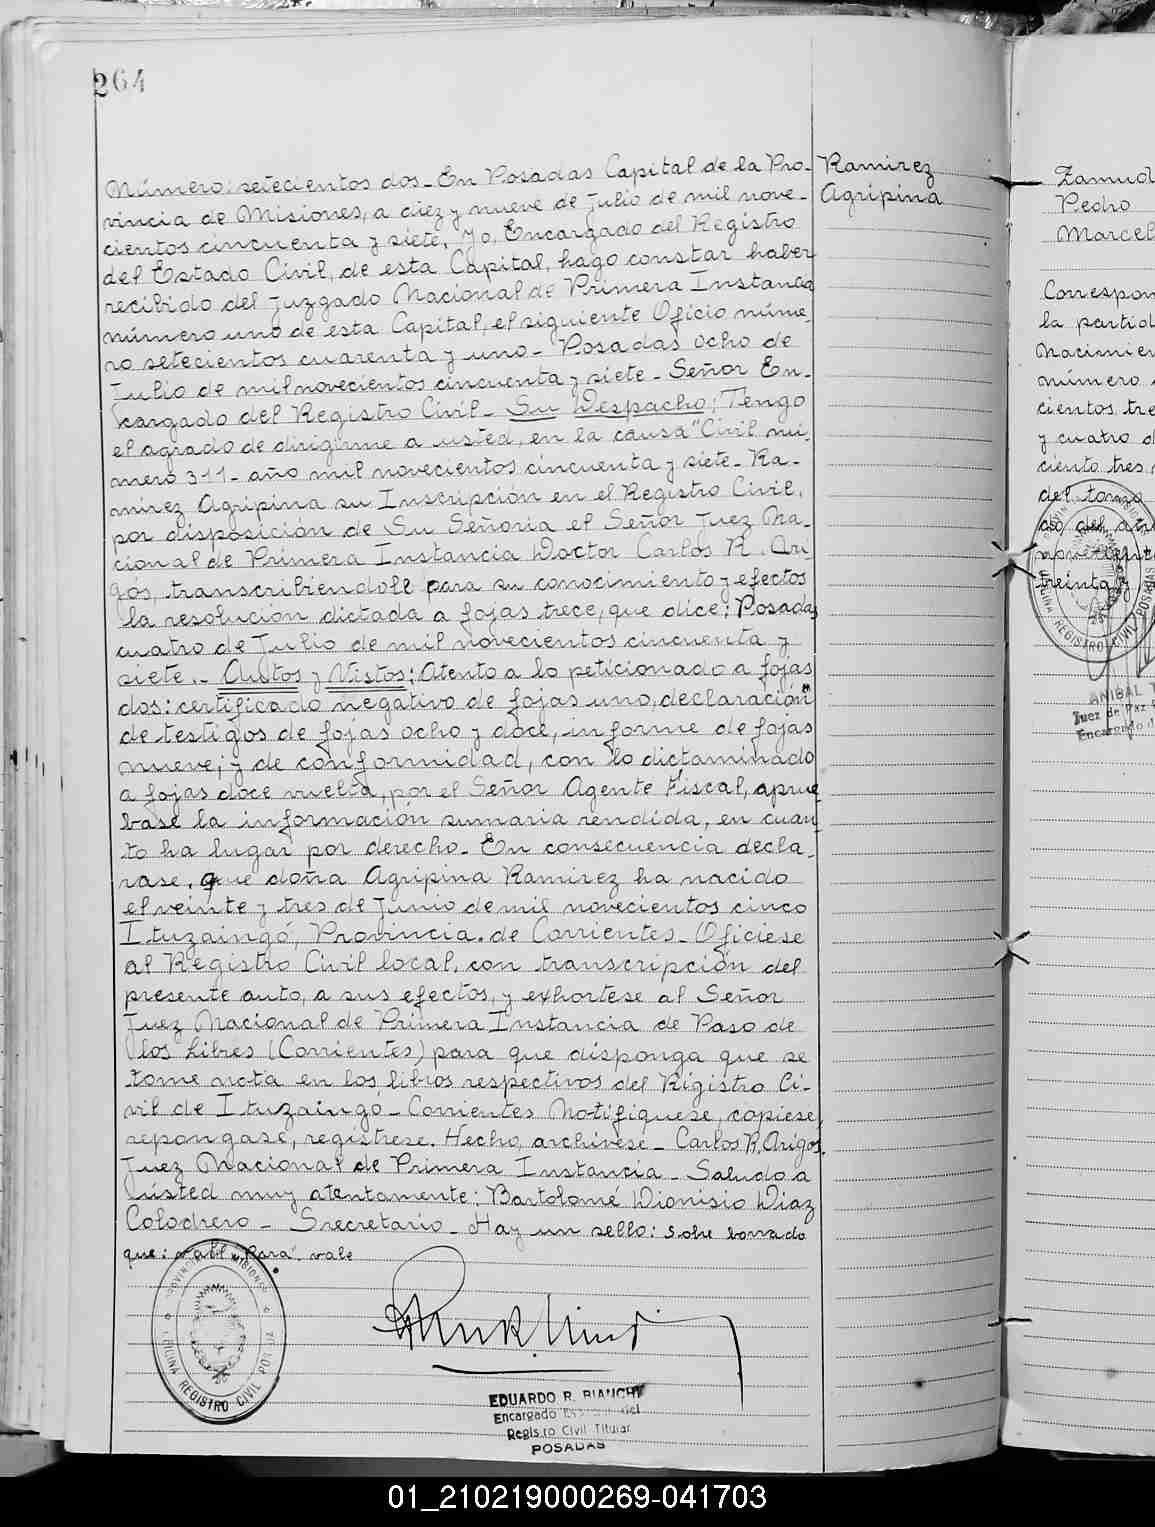 264
Número: setecientos dos_ En Posadas Capital de la Pro-
vincia de Misiones, a diez y nueve de Julio de mil nove-
cientos cincuenta y siete, Yo, Encargado del Registro
del Estado Civil, de esta Capital, hago constar haber
recibido del Juzgado Nacional de Primera Instancia
número uno de esta Capital, el siguiente Oficio núme-
ro setecientos cuarenta y uno_ Posadas ocho de
Julio de mil novecientos cincuenta y siete_ Señor En-
cargado del Registro Civil_ Su Despacho; Tengo
el agrado de dirigirme a usted, en la causa "Civil nú-
mero 311_ año mil novecientos cincuenta y siete_ Ra-
mirez Agripina su Inscripción en el Registro Civil,
por disposición de Su Señoria el Señor Juez Na-
cional de Primera Instancia Doctor Carlos R. Ari-
gós, transcribiendole para su conocimiento y efectos
la resolución dictada a fojas trece, que dice; Posadas
cuatro de Julio de mil novecientos cincuenta y
siete._ Autos y Vistos; Atento a lo peticionado a fojas
dos: certificado negativo de fojas uno, declaración
de testigos de fojas ocho y doce, informe de fojas
nueve; y de conformidad, con lo dictaminado
a fojas doce vuelta, por el Señor Agente Fiscal, aprue
base la informacion sumaria rendida, en cuan-
to ha lugar por derecho_ En consecuencia decla-
rase, que doña Agripina Ramirez ha nacido
el veinte y tres de Junio de mil novecientos cinco
Ituzaingó, Provincia. de Corrientes_ Oficiese
al Registro Civil local, con transcripción del
presente auto, a sus efectos, y exhortese al Señor
Juez Nacional de Primera Instancia de Paso de
los Libres (Corrientes) para que disponga que se
tome nota en los libros respectivos del Registro Ci-
vil de Ituzaingó_ Corrientes Notifiquese, copiese,
repongase, registrese. Hecho, archivese_ Carlos R. Arigos.
Juez Nacional de Primera Instancia_ Saludo a
usted muy atentamente; Bartolomé Dionisio Diaz
Colodrero_ Secretario_ Hay un sello: Sobre borrado
que: para. vale
Ramirez
Agripina
PROVINCIA MISIONES
OFICINA REGISTRO CIVIL POSADAS
EDUARDO R. BIANCHI
Encargado del
Registro Civil Titular
POSADAS
Zamud
Pedro
Marcel
Correspon
la partid
Nacimien
número
cientos tre
y cuatro d
ciento tres
del tomo
treinta y
OFICINA REGISTRO CIVIL POSADAS
ANIBAL
Juez de Paz
Encargado d
01_210219000269-041703